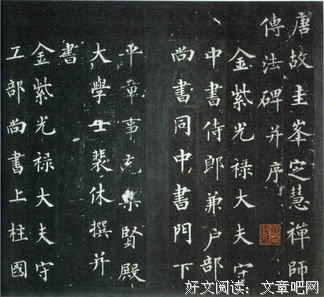 唐故圭峯定慧禪師
傳法碑并序
金紫光祿大夫守
中書侍郎兼户部
尚書同中書門下
平章事充集賢殿
大學士裴休撰并
書
金紫光祿大夫守
工部尚書上柱國
好文阅读：文章吧网